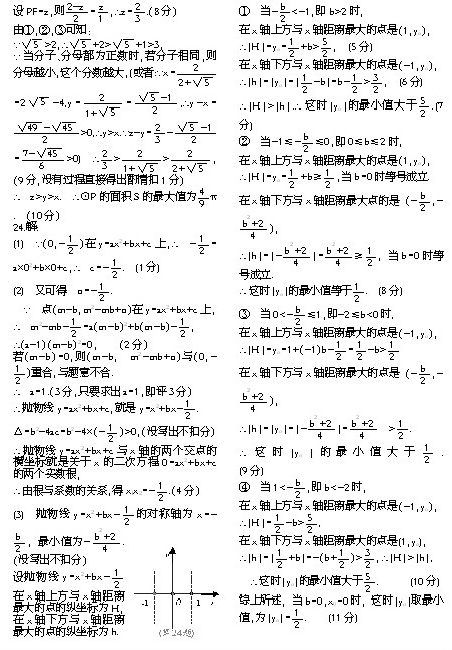 设PF=z,则(2-z)/2=z/1,∴z=2/3.(8分)
由①,②,③可知:
∵√5>2,∴√5+2>√5+1>3,
∵当分子、分母都为正数时,若分子相同,则
分母越小,这个分数越大,(或者:x=2/(2+√5)
=2√5-4,y=2/(1+√5)=(√5-1)/2,∴y-x=
(√49-√45)/2>0,∴y>x.∴z-y=2/3-(√5-1)/2
=(7-√45)/6>0) ∴2/3>2/(1+√5)>2/(2+√5),
(9分,没有过程直接得出酌情扣1分)
∴ z>y>x. ∴⊙P的面积S的最大值为4/9π
. (10分)
24.解:
(1) ∵(0,-1/2)在y=ax²+bx+c上,∴ -1/2=
a×0²+b×0+c,∴ c=-1/2. (1分)
(2) 又可得 n=-1/2.
∵ 点(m-b,m²-mb+n)在y=ax²+bx+c上,
∴ m²-mb-1/2=a(m-b)²+b(m-b)-1/2,
∴(a-1)(m-b)²=0, (2分)
若(m-b)=0,则(m-b, m²-mb+n)与(0,-
1/2)重合,与题意不合.
∴ a=1.(3分,只要求出a=1,即评3分)
∴抛物线y=ax²+bx+c,就是y=x²+bx-1/2.
△=b²-4ac=b²-4×(-1/2)>0,(没写出不扣分)
∴抛物线y=ax²+bx+c与x轴的两个交点的
横坐标就是关于x的二次方程0=ax²+bx+c
的两个实数根,
∴由根与系数的关系,得x₁x₂=-1/2.(4分)
(3) 抛物线y=x²+bx-1/2的对称轴为x=-
b/2, 最小值为-(b²+2)/4.
(没写出不扣分)
设抛物线y=x²+bx-1/2
在x轴上方与x轴距离
最大的点的纵坐标为H,
在x轴下方与x轴距离
最大的点的纵坐标为h.
y
-1 0 1 x
(第24题)
① 当-b/2<-1,即b>2时,
在x轴上方与x轴距离最大的点是(1,y₀),
∴|H|=y₀=1/2+b>5/2, (5分)
在x轴下方与x轴距离最大的点是(-1,y₀),
∴|h|=|y₀|=|1/2-b|=b-1/2>3/2, (6分)
∴|H|>|h|.∴这时|y₀|的最小值大于5/2.(7
分)
② 当-1≤-b/2≤0,即0≤b≤2时,
在x轴上方与x轴距离最大的点是(1,y₀),
∴|H|=y₀=1/2+b≥1/2,当b=0时等号成立.
在x轴下方与x轴距离最大点的是 (-b/2,-
(b²+2)/4),
∴|h|=|-(b²+2)/4|=(b²+2)/4≥1/2, 当b=0时等
号成立.
∴这时|y₀|的最小值等于1/2. (8分)
③ 当0<-b/2≤1,即-2≤b<0时,
在x轴上方与x轴距离最大的点是(-1,y₀),
∴|H|=y₀=1+(-1)b-1/2=1/2-b>1/2
在x轴下方与x轴距离最大的点是 (-b/2,-
(b²+2)/4),
∴|h|=|y₀|=|-(b²+2)/4|=(b²+2)/4 >1/2.
∴ 这时|y₀|的最小值大于1/2.
(9分)
④ 当1<-b/2,即b<-2时,
在x轴上方与x轴距离最大的点是(-1,y₀),
∴|H|=1/2-b>5/2,
在x轴下方与x轴距离最大的点是(1,y₀),
∴|h|=|1/2+b|=-(b+1/2)>3/2,∴|H|>|h|,
∴这时|y₀|的最小值大于5/2. (10分)
综上所述,当b=0,x₀=0时,这时|y₀|取最小
值,为|y₀|=1/2. (11分)